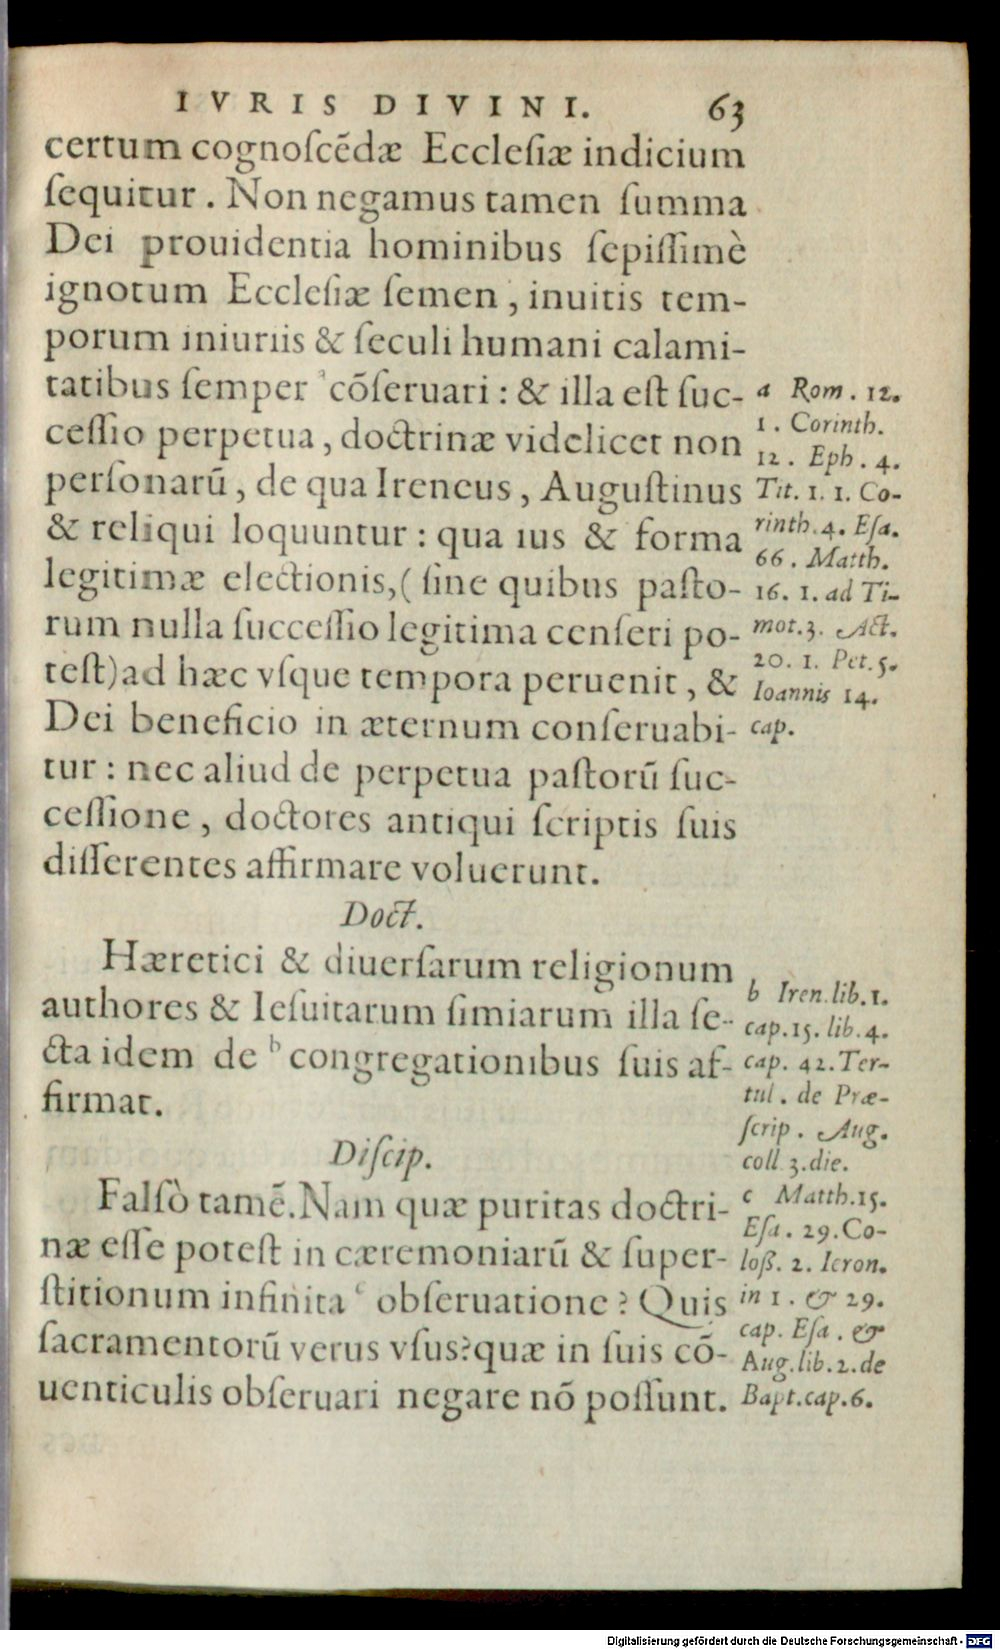 IVRIS DIVINI. 63
certum cognoſcẽdæ Eccleſiæ indicium
ſequitur. Non negamus tamen ſumma
Dei prouidentia hominibus ſepiſſimè
ignotum Eccleſiæ ſemen, inuitis tem-
porum iniuriis & ſeculi humani calami-
tatibus ſemper ᵃcõſeruari: & illa eſt ſuc-
ceſſio perpetua, doctrinæ videlicet non
perſonarũ, de qua Ireneus, Auguſtinus
& reliqui loquuntur: qua ius & forma
legitimæ electionis,( ſine quibus paſto-
rum nulla ſucceſſio legitima cenſeri po-
teſt)ad hæc vſque tempora peruenit, &
Dei beneficio in æternum conſeruabi-
tur: nec aliud de perpetua paſtorũ ſuc-
ceſſione, doctores antiqui ſcriptis ſuis
diſſerentes affirmare voluerunt.
a Rom. 12.
1. Corinth.
12. Eph. 4.
Tit. 1. 1. Co-
rinth. 4. Eſa.
66. Matth.
16. 1. ad Ti-
mot.3. Act.
20. 1. Pet.5.
Ioannis 14.
cap.
Doct.
Hæretici & diuerſarum religionum
authores & Ieſuitarum ſimiarum illa ſe-
cta idem de ᵇcongregationibus ſuis af-
firmat.
b Iren.lib.1.
cap.15. lib.4.
cap. 42.Ter-
tul. de Præ-
ſcrip. Aug.
coll 3.die.
Diſcip.
Falſò tamẽ.Nam quæ puritas doctri-
næ eſſe poteſt in cæremoniarũ & ſuper-
ſtitionum infinita ᶜ obſeruatione? Quis
sacramentorũ verus vſus?quæ in ſuis cõ-
uenticulis obſeruari negare nõ poſſunt.
c Matth.15.
Eſa. 29.Co-
loß. 2. Ieron.
in 1. & 29.
cap. Eſa. &
Aug.lib.2.de
Bapt.cap.6.
Digitalisierung gefördert durch die Deutsche Forschungsgemeinschaft - DFG